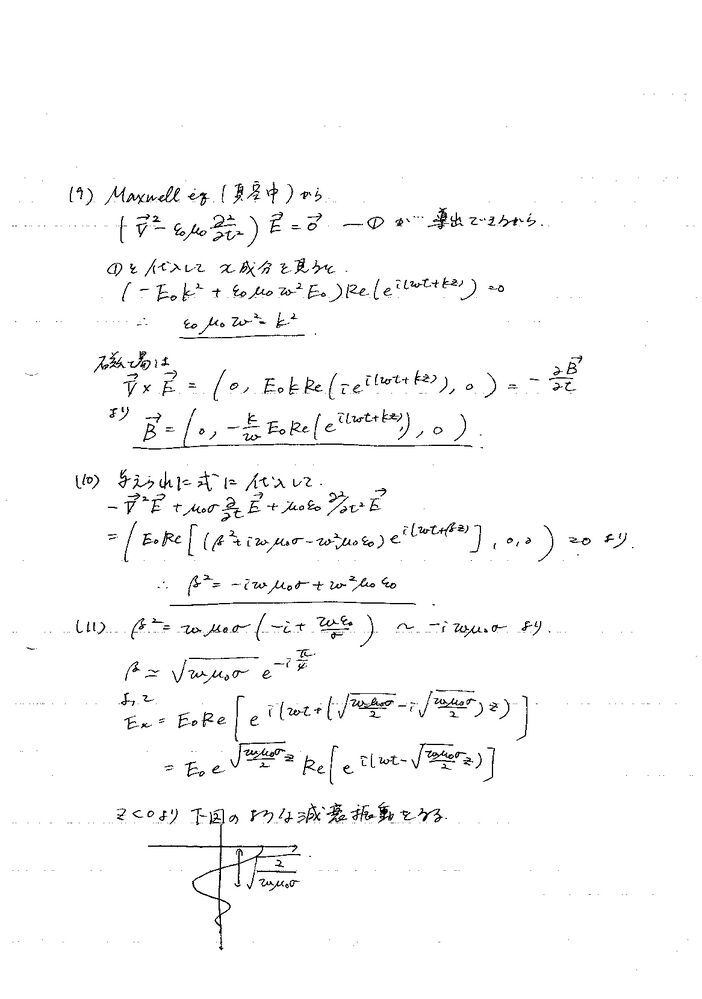 (9) Maxwell eq (真空中) から
( ∇⃗² − ε₀μ₀ ∂²/∂t² ) E⃗ = 0⃗ —① が 導出できるから.
①を代入して x成分を見ると.
( − E₀k² + ε₀μ₀ω²E₀ ) Re( e^{i(ωt+kz)} ) = 0
∴ ε₀μ₀ω² = k²
磁場は
∇⃗ × E⃗ = ( 0, E₀k Re( i e^{i(ωt+kz)} ), 0 ) = − ∂B⃗/∂t
より B⃗ = ( 0, −k/ω E₀ Re( e^{i(ωt+kz)} ), 0 ) .
(10) 与えられた式に代入して.
−∇⃗²E⃗ + μ₀σ ∂/∂t E⃗ + μ₀ε₀ ∂²/∂t² E⃗
= ( E₀Re[ (β² + iωμ₀σ − ω²μ₀ε₀) e^{i(ωt+βz)} ], 0, 0 ) = 0 より.
∴ β² = −iωμ₀σ + ω²μ₀ε₀
(11) β² = ωμ₀σ ( −i + ωε₀/σ ) ~ −iωμ₀σ より.
β ≃ √(ωμ₀σ) e^{−iπ/4}
よって
Eₓ = E₀Re[ e^{i(ωt + (√(ωμ₀σ/2) − i√(ωμ₀σ/2)) z)} ]
= E₀ e^{√(ωμ₀σ/2) z} Re[ e^{i(ωt − √(ωμ₀σ/2) z)} ]
z<0より 下図のような減衰振動をする.
√(2/ωμ₀σ)